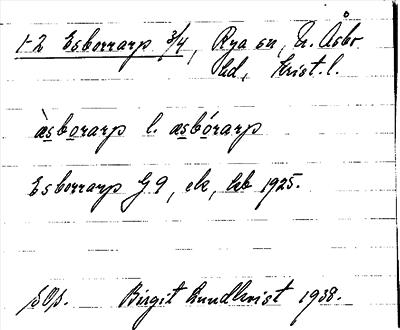 1-2 Esborrarp 3/4, Rya sn, N. Åsbo
hd, Krist. l.
àsborarp l. asbórarp
Esborrarp G 9, ek, kb 1925.
sOp. Birgit Lundkvist 1938.